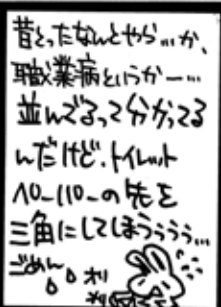 昔とったなんとやら…か、
職業病というかー…
並んでるって分かってる
んだけど、トイレット
ペーパーの先を
三角にしてしまうぅぅぅ…
ごめん